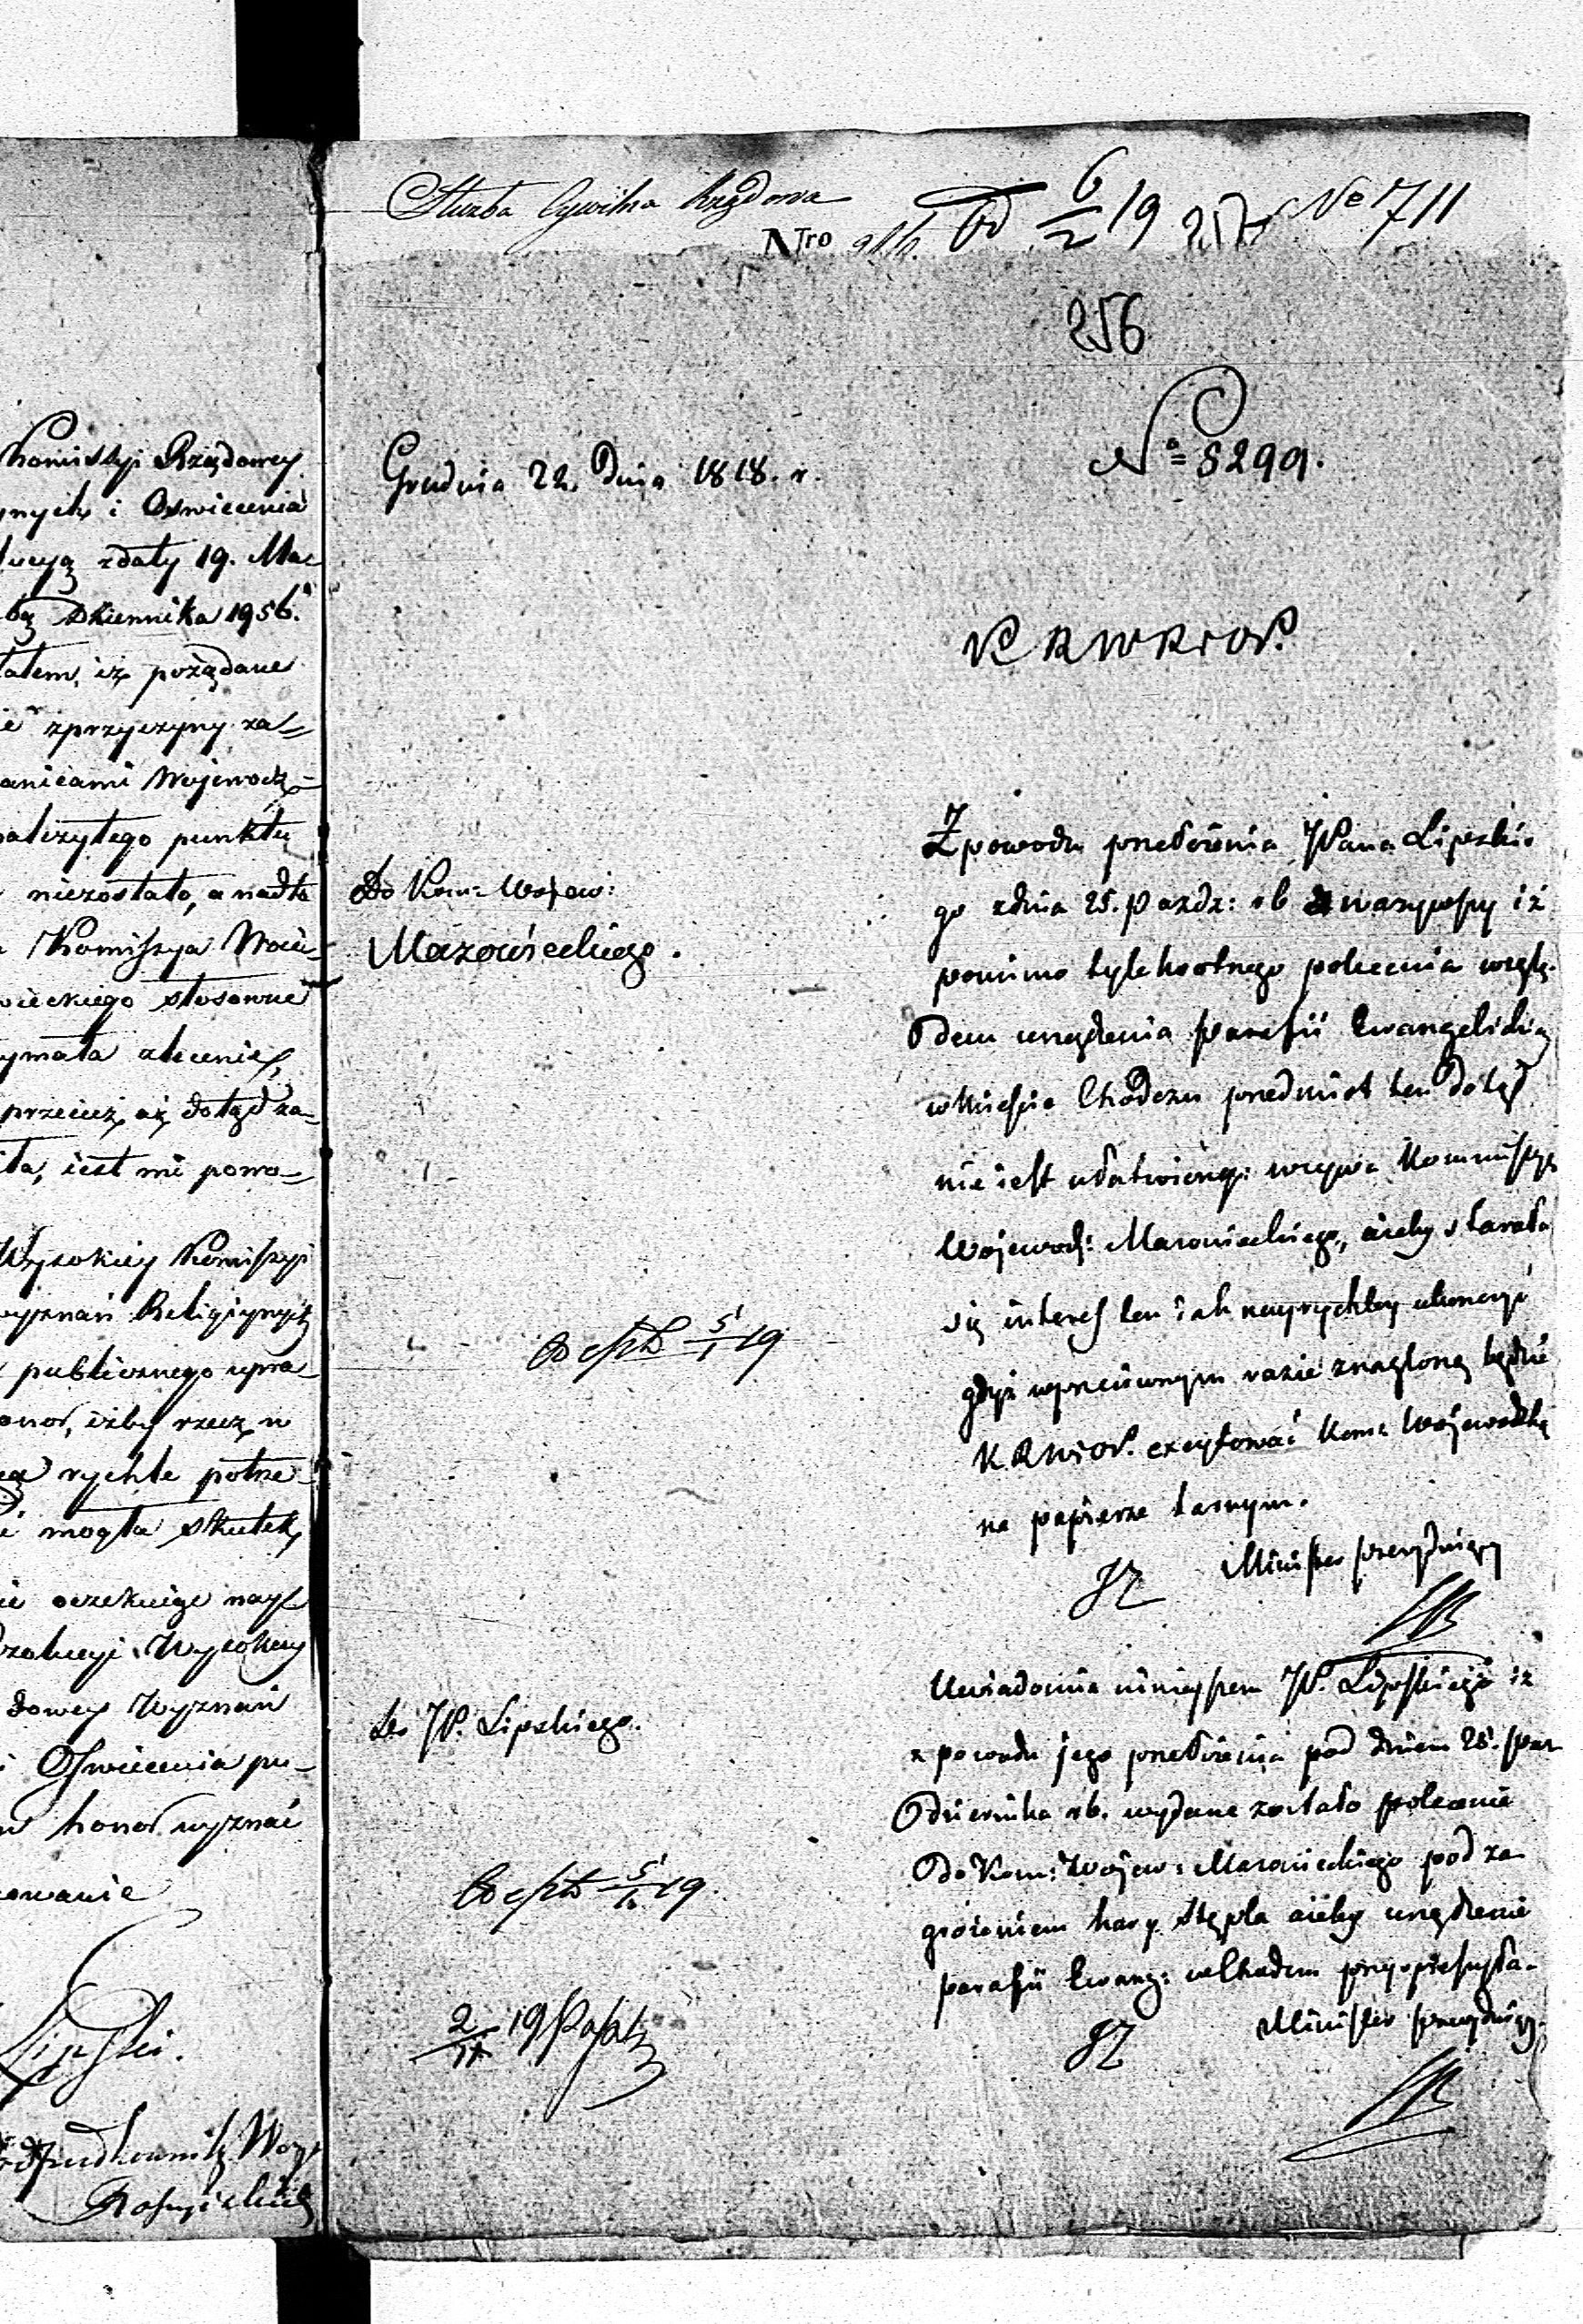 Komissyi Rządowey
ynych i Oswiecenia
lucyą zdaty 19. Ma-
bą Dziennika 1956.
tatem, iż pożądane
ie zprzyczyny za-
anicami Wojewodz-
należytego punktu
niezostało, a nadto
Komissya Woie-
wieckiego stosowne
ymała zlecenie,
przecież aż dotąd za-
iła, iest mi powo-
Wysokiey Komissyi
wyznań Religiynych
publicznego upra-
onor, iżby rzecz w
rychle potrze-
mogła skutek,
ie oczekuige nay-
zolucyi Wysokiey
dowey Wyznań
i Oświecenia pu-
honor wyznać
owanie
Lipski.
Służba Cywilna Rządowa
Nro od 6/2 19 257 No 1711
256
No = 8299.
Grudnia 22. Dnia 1818. r.
K R W R i O P.
Do Kom: Wojew:
Mazowieckiego.
Z powodu przełożenia JPana Lipskie
go zdnia 25. Pazdz: rb iż
pomimo tylekrotnego polecenia wzglę-
dem urządzenia parafii Ewangelickiej
w Mieście Chodczu przedmiot ten dotąd
nie iest ułatwiony: wzywa Kommissyę
Wojewodz: Mazowieckiego, ażeby starała
się interes ten iak nayrychley ukonczyć
gdyż wprzeciwnym razie znagloną będzie
K. R. W i O P. excytować Kom: Wojewodzką
na papierze
Minister prezyduiący
Do JP. Lipskiego.
Uwiadomia ninieyszem JP. Lipskiego iż
z powodu jego przełożenia pod dniem 25. paz-
dziernika rb. wydane zostało polecenie
do Kom: Wojew: Mazowieckiego pod za-
grożeniem kary stępla ażeby urządzenie
parafii Ewang: w Chodczu
Minister prezyduiący.